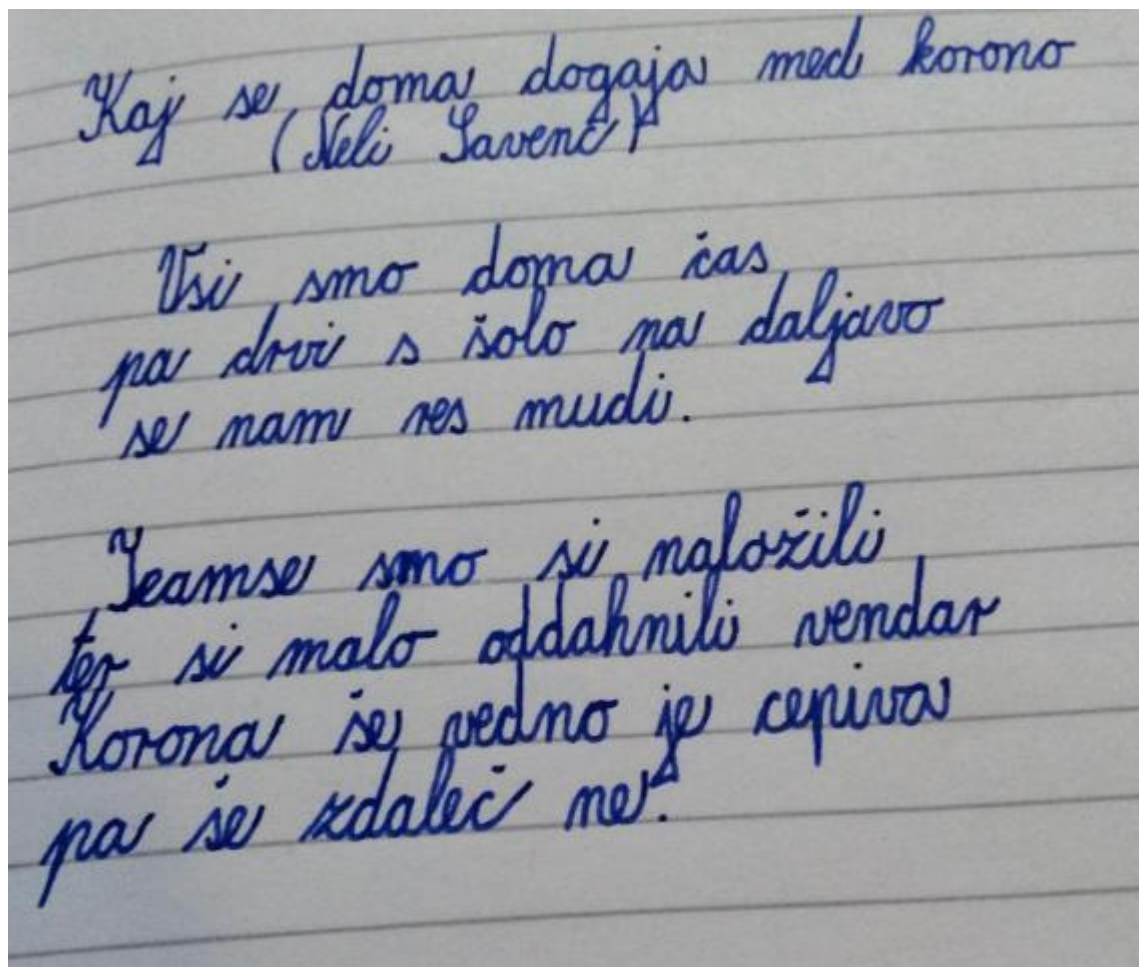 Kaj se doma dogaja med korono
(Neli Savenc)
Vsi smo doma čas
pa drvi s šolo na daljavo
se nam res mudi.
Teamse smo si naložili
ter si malo oddahnili vendar
Korona še vedno je cepiva
pa še zdaleč ne.